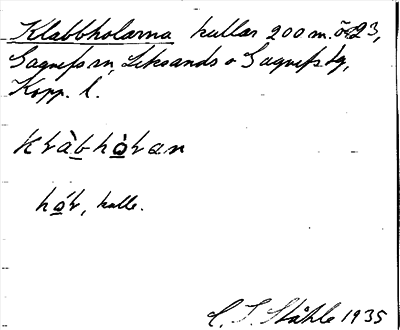 Klabbholarna kullar 200 m. ö 23,
Gagnefs sn, Leksands o Gagnefs tg,
Kopp. l.
kràbhòran
hór, kulle.
C. I. Ståhle 1935